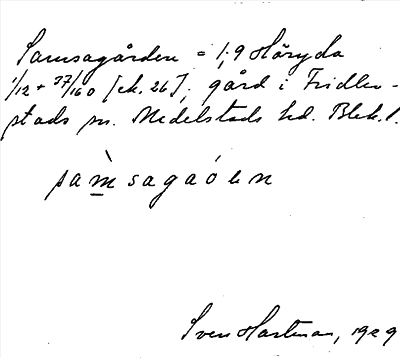 Samsagården = 1,9 Häryda
1/12 + 37/160 [ek. 26], gård i Fridlev-
stads sn. Medelstads hd. Blek. l.
sam̀sagaóen
Sven Hartman, 1929